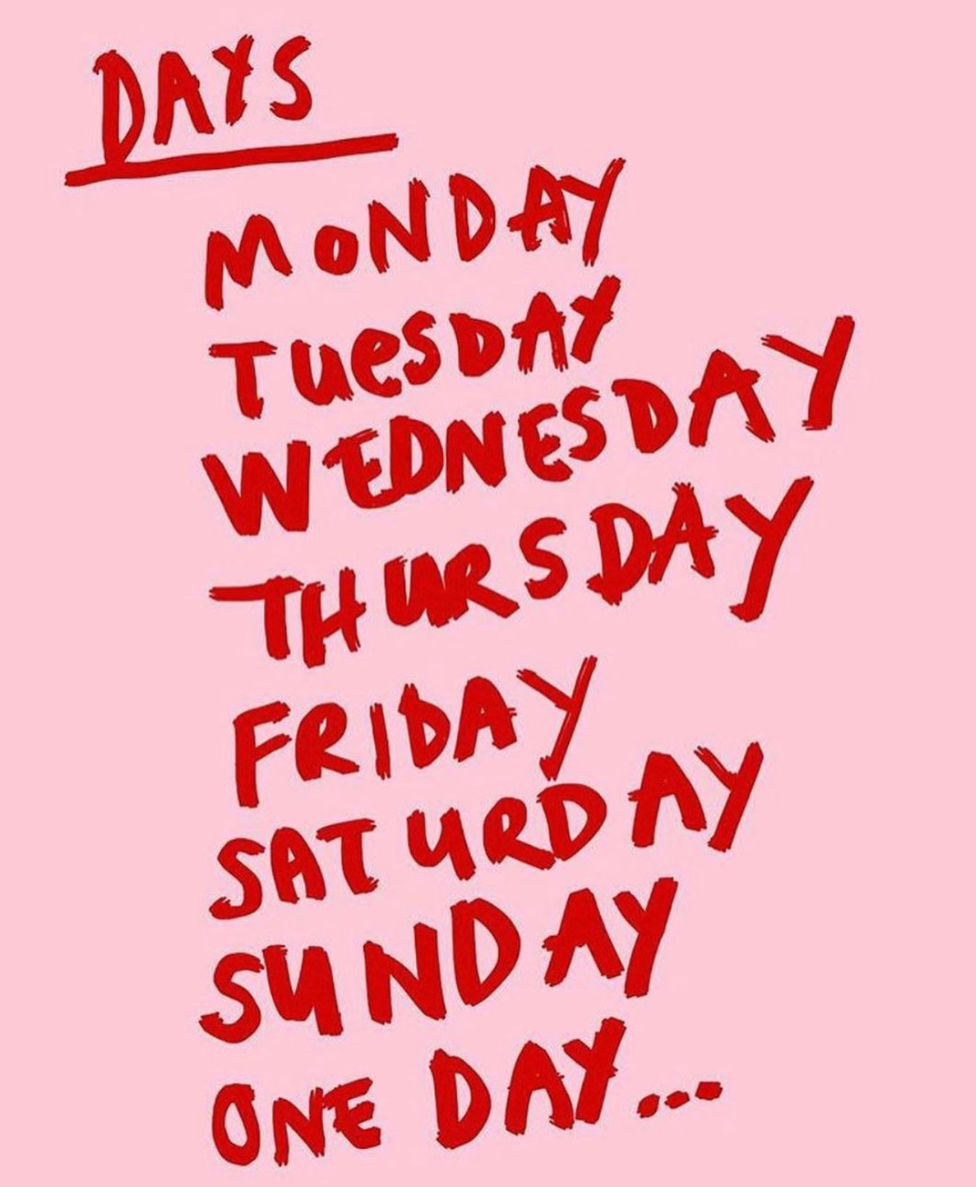 DAYS
MONDAY
TUeSDAY
WEDNESDAY
THURSDAY
FRIDAY
SATURDAY
SUNDAY
ONE DAY...